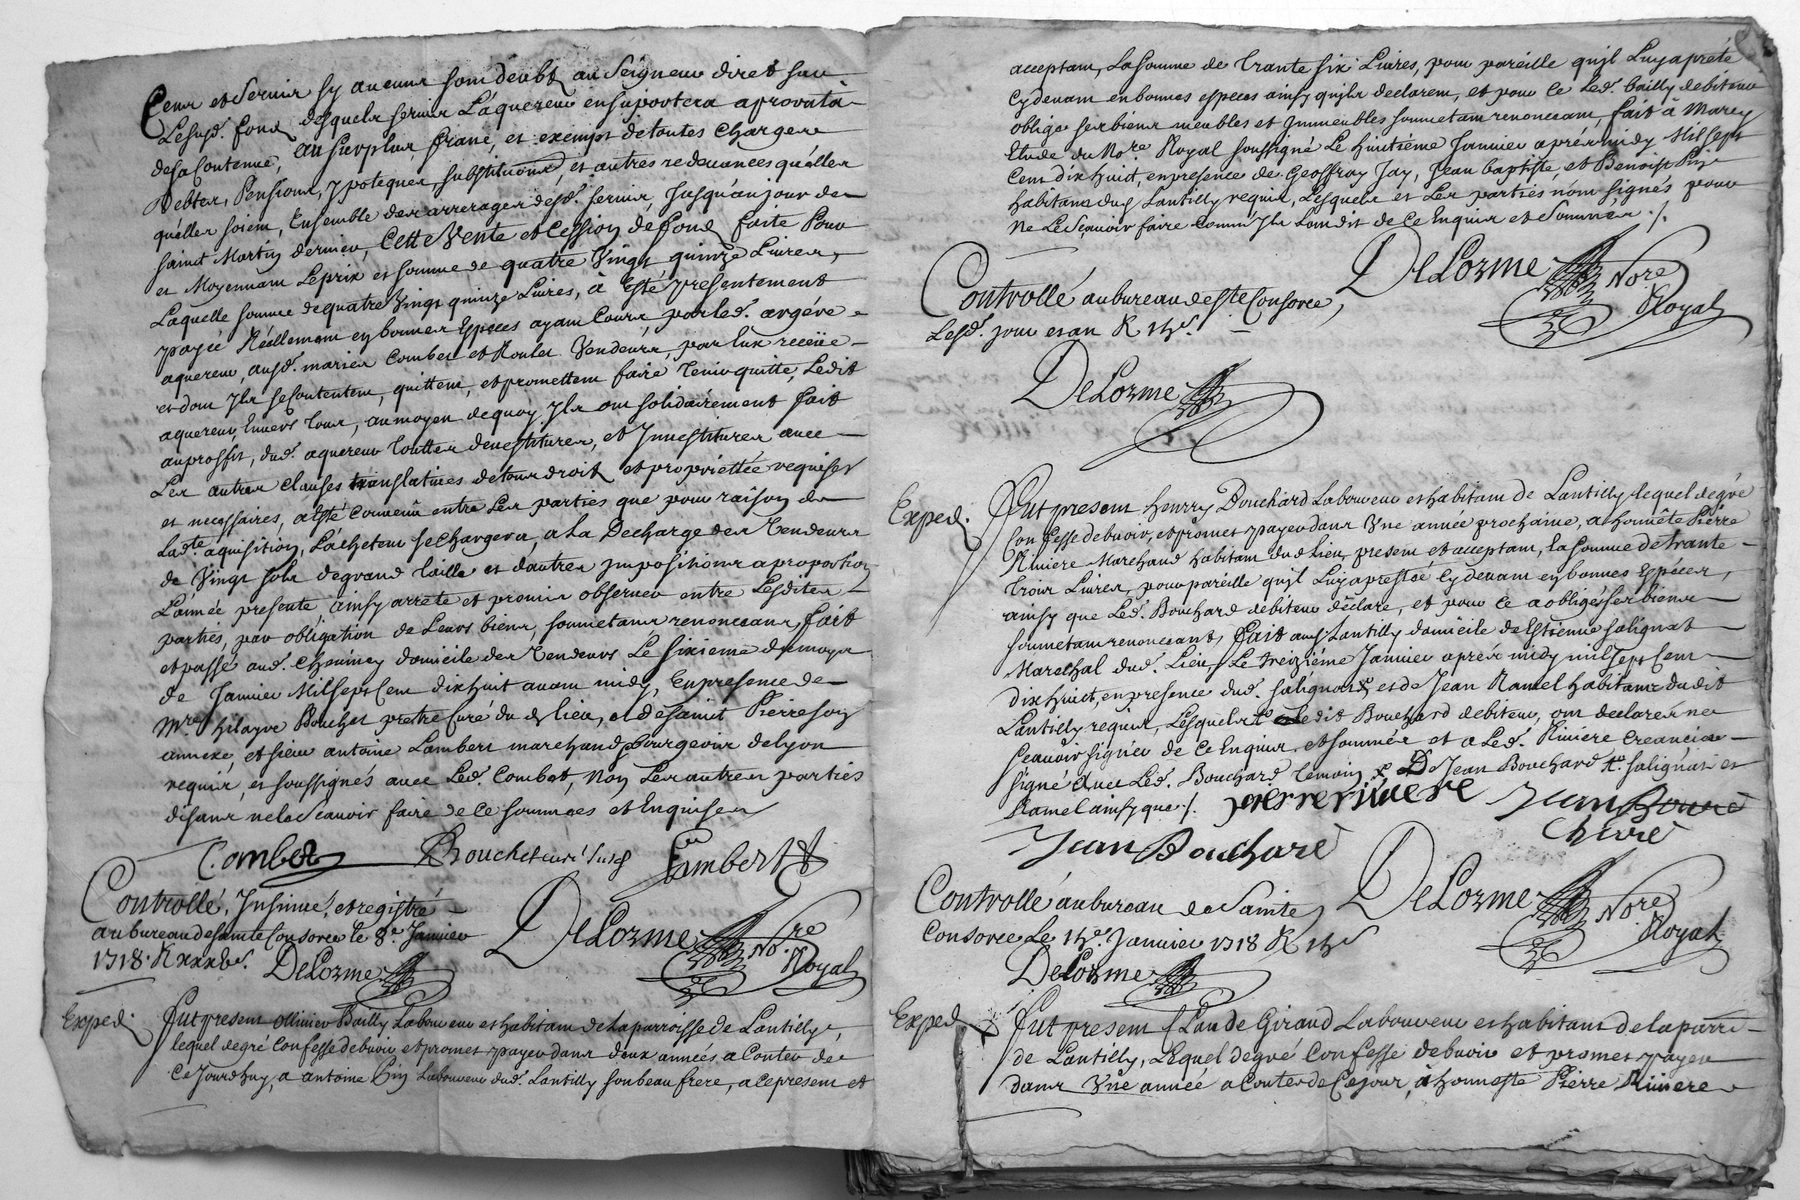 Cens et servis sy aucuns sont deubt au Seigneur direct sur
Lesusd. fond, desquels servis L'aquereur en suportera a prorata
de sa Contenue, au surplus franc, et exempt de toutes Charges
Debtes, Pensions, ypoteques, substitutions, et autres redevances qu'elles
quelles soient, Ensemble des arrerages desd. servis, Jusqu'au jour de
saint Martin dernier, Cette Vente et Cession de fond faite Pour
et Moyennant Le prix et somme de quatre Vingt quinze Livres,
Laquelle somme de quatre Vingt quinze Livres, à Esté presentement
payée Réellement en bonnes Especes ayant Cours, par led. argéré
aquereur ausd. mariés Combet et Roulet Vendeurs, par Eux receüe
et dont Jls se Contentent, quittent, et promettent faire tenir quitte, Ledit
aquereur, Envers tous, au moyen de quoy Jls ont solidairement fait
au proffit, dud. aquereur toutes devestitures, et Jnvestitures avec
Les autres clauses translatives de tous droit et propriettée requises
et necessaires, a Esté Convenû entre Les parties que pour raison de
Lad.te aquisition, L'acheteur se Chargera, a La Decharge des Vendeurs
de Vingt sols de grand taille et d'autres Jmpositions a proportion
L'année presente ainsy arrété et promis observer entre Lesdites
parties, par obligation de Leurs biens, soumetans renoncans, fait
et passé aud. Cheviney domicile des Vendeurs Le sixieme du moys
de Janvier Mil sept Cent dix huit avant midy, En presence de
Mre. hilayre Bouchet pretre Curé du d lieu, et de saint Pierre son
annexe, et sieur antoine Lambert marchand bourgeois de Lyon
requis, et soussignés avec Led. Combet, Non Les autres parties
disant ne le sçavoir faire de ce sommées et Enquises
Combet Bouchet curé susd Lambert
Controllé, Jnsinué, et registré
au bureau de sainte Consorce le 8e Janvier
1718. R xxx s. DeLorme
DeLorme Nore. Royal
Exped. Fut present Ollivier Bailly Laboureur et habitant de La parroisse de Lantilly,
lequel de gré Confesse debvoir et promet payer dans deux années, a Conter de
Ce Jourdhuy, a antoine Laboureur dud. Lantilly son beau frere, a ce present et
acceptant, La somme de trante six Livres, pour pareille qu'jl Luy a preté
Cy devant en bonnes especes ainsy qu'jls declarent, et pour ce Led. bailly debiteur
oblige ses biens meubles et Jmmeubles soumetant renoncant, fait à Marcy
Etude du Nore. Royal soussigné Le huitiéme Janvier aprés midy Mil sept
Cent dix huict, en presence de Geoffray Jay, Jean baptiste, et Benoist
habitans dud Lantilly requis, Lesquels et Les parties n'ont signés pour
ne Le sçavoir faire Comm' Jls L'ont dit de Ce Enquis et Sommés ./.
DeLorme Nore. Royal
Controllé au bureau de Ste Consorce,
Lesd. jour et an R
DeLorme
Exped. Fut present henrry Bouchard Laboureur et habitant de Lantilly lequel de gré
Confesse debvoir, et promet payer dans Vne année prochaine, a honnête Pierre
Riviere Marchand habitant dud Lieu, present et acceptant, la somme de trante
trois Livres, pour pareille qu'jl Luy a presté Cy devant en bonnes Especes,
ainsy que Led. Bouchard debiteur déclare, et pour ce a obligé ses biens
soumetant renoncant, fait aud Lantilly domicile de Estienne salignat
Mareschal dud. Lieu, Le treiziéme Janvier aprés midy mil sept Cent
dix huict, en presence dud. salignat et de Jean Ramel habitans dudit
Lantilly requis, Lesquels et Ledit Bouchard debiteur, ont declarés ne
sçavoir signer de Ce Enquis et sommés et a Led. Riviere Creancier
signé avec Led. Bouchard témoin, Jean Bouchard salignat et
Ramel ainsy que ./. pierre riviere Jean Bouchard
Jean Bouchard
Controllé au bureau de Sainte
Consorce Le Janvier 1718 R
DeLorme
DeLorme Nore. Royal
Exped. Fut present Claude Giraud Laboureur et habitant de la parre
de Lantilly, Lequel de gré Confesse debvoir et promet payer
dans Vne année a Conter de Ce jour, a honneste Pierre Riviere